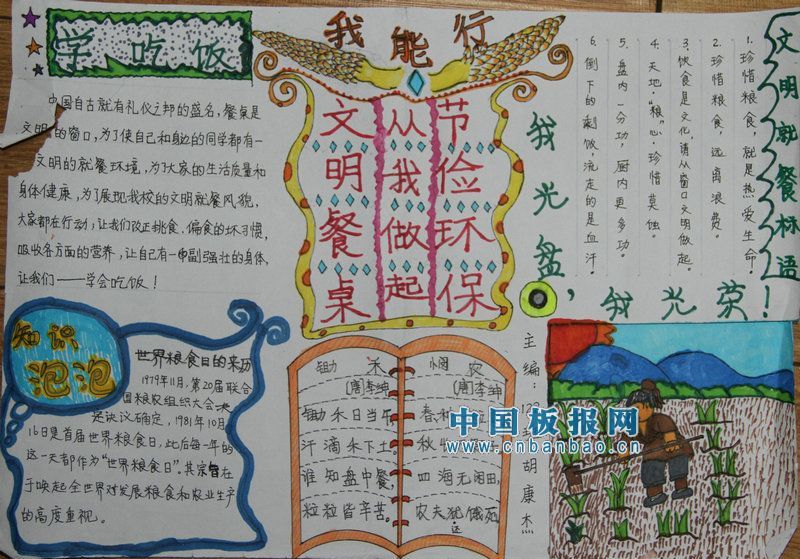 学吃饭
中国自古就有礼仪之邦的盛名，餐桌是
文明的窗口，为了使自己和身边的同学都有一
文明的就餐环境，为了大家的生活质量和
身体健康，为了展现我校的文明就餐风貌，
大家都在行动；让我们改正挑食、偏食的坏习惯，
吸收各方面的营养，让自己有一申副强壮的身体，
让我们——学会吃饭！
我能行
节俭环保
从我做起
文明餐桌
文明就餐标语
1.珍惜粮食，就是热爱生命。
2.珍惜粮食，远离浪费。
3.饮食是文化，请从窗口文明做起。
4.天地“粮”心，珍惜莫蚀。
5.盘内一分功，厨内更多功。
6.倒下的剩饭，流走的是血汗。
我光盘，我光荣！
知识泡泡
世界粮食日的来历
1979年11月，第20届联合
国粮农组织大会决
是决议确定，1981年10月
16日是首届世界粮食日，此后每一年的
这一天都作为“世界粮食日”。其宗旨在
于唤起全世界对发展粮食和农业生产
的高度重视。
锄禾
[唐]李绅
锄禾日当午
汗滴禾下土。
谁知盘中餐
粒粒皆辛苦。
悯农
(唐)李绅
春
秋
四海无闲田
农夫犹饿死
主编：
胡康杰
中国板报网
www.cnbanbao.cn